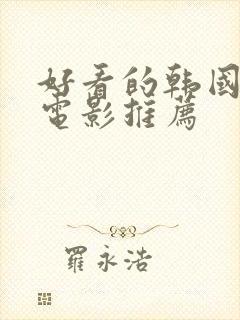 好看的韩國
電影推薦
羅永浩